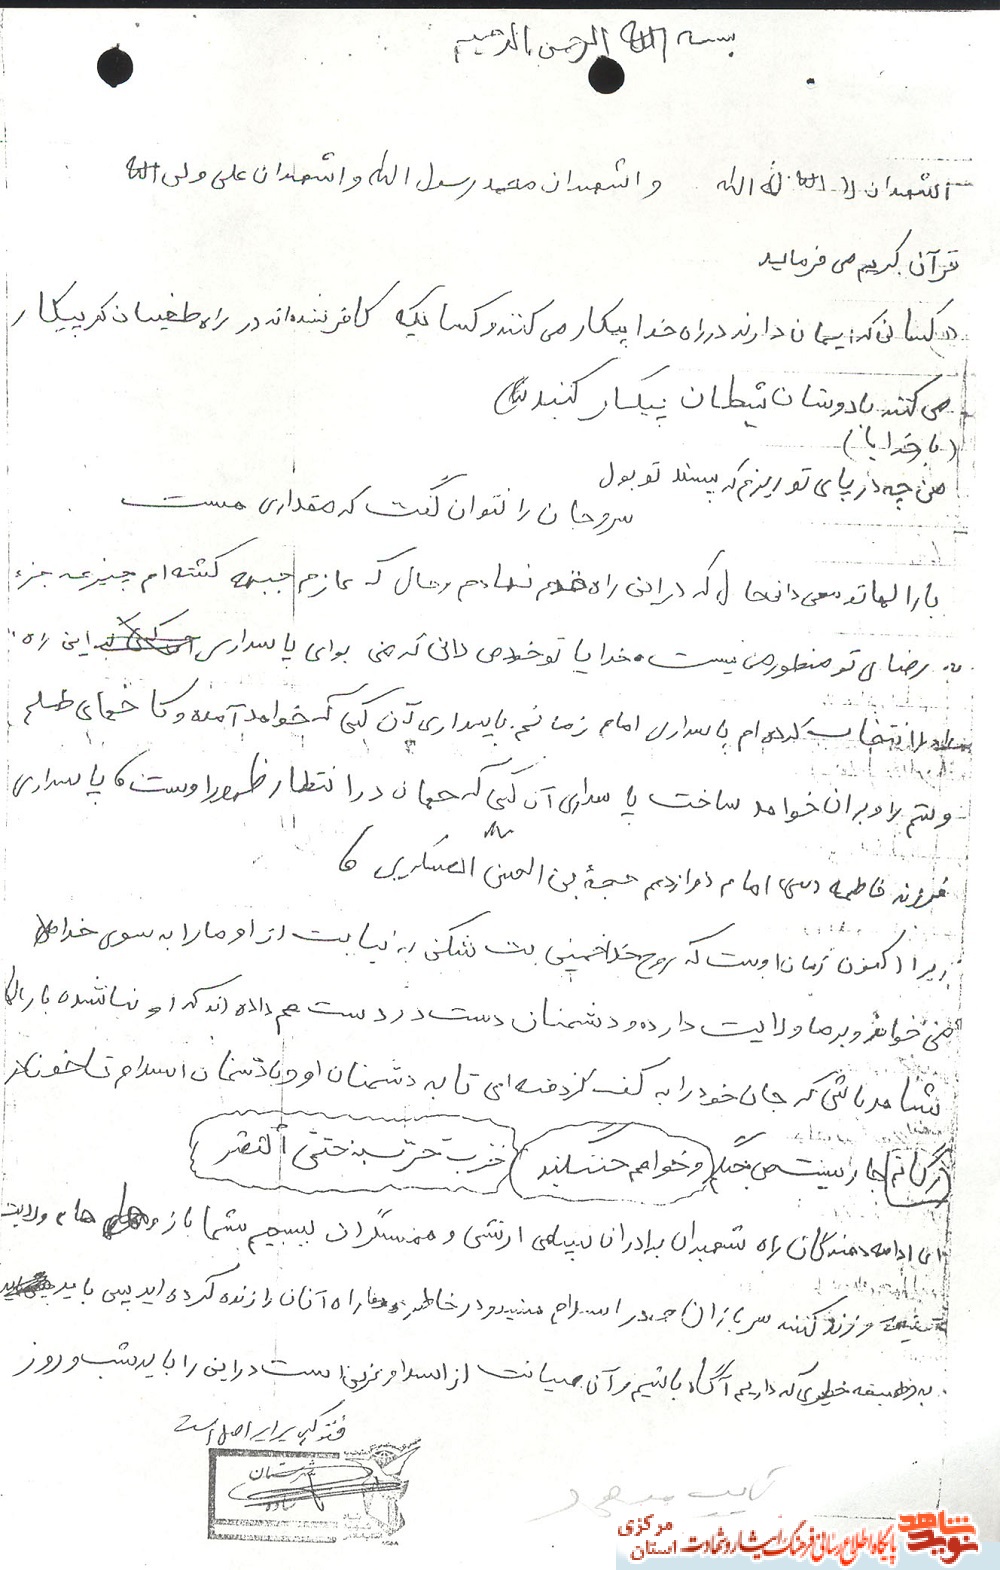 بسم الله الرحمن الرحیم
اشهدان لا اله الا الله و اشهدان محمد رسول الله و اشهدان علی ولی الله
قرآن کریم می فرماید
کسانی که ایمان دارند در راه خدا پیکار می کنند و کسانیکه کافر شده اند در راه طغیان گر پیکار
می کنند با دوستان شیطان پیکار کنید
(بار خدایا)
من چه در پای تو ریزم که پسند تو بود
سر و جان را نتوان گفت که مقداری هست
بارالها تو می دانی حال که در این راه قدم نهادم و حال که عازم جبهه گشته ام چیزی جزء
رضای تو منظور من نیست خدایا تو خود می دانی که من برای پاسداری این راه
را انتخاب کرده ام پاسداری امام زمانم پاسداری آن کسی که خواهد آمد و کاخهای ظلم
و ستم را ویران خواهد ساخت پاسداری آن کسی که جهان در انتظار ظهور اوست پاسداری
فرزند فاطمه امام دوازدهم حجة بن الحسن العسکری
زیرا اکنون زمان اوست که روح خدا خمینی بت شکن به نیابت از او ما را به سوی خدا
می خواند و بر ما ولایت دارد و دشمنان دست در دست هم داده اند که او نباشد بارالها
شاهد باشی که جان خود را به کف گرفته ام تا به دشمنان او و با دشمنان اسلام تا خون در
رگانم جاریست می جنگم و خواهم جنگید حزب
ای ادامه دهندگان راه شهیدان برادران سپاهی ارتشی و همسنگران بسیجیم شما
سربازان صدر اسلام هستید و در خاطره ها راه آنان را زنده کرده اید پس باید
به وظیفه خطیری که داریم آگاه باشیم و آن صیانت از اسلام عزیز است در این راه باید شب و روز
فتوکپی برابر اصل است
شهرستان
ساوه
نوید شاهد
پایگاه اطلاع رسانی فرهنگ ایثار و شهادت
استان مرکزی